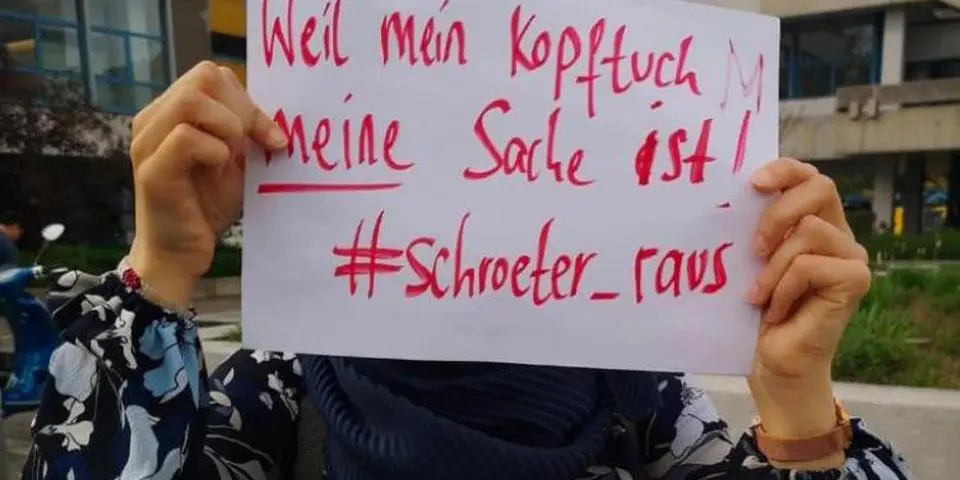 Weil mein Kopftuch
meine Sache ist!
#schroeter_raus